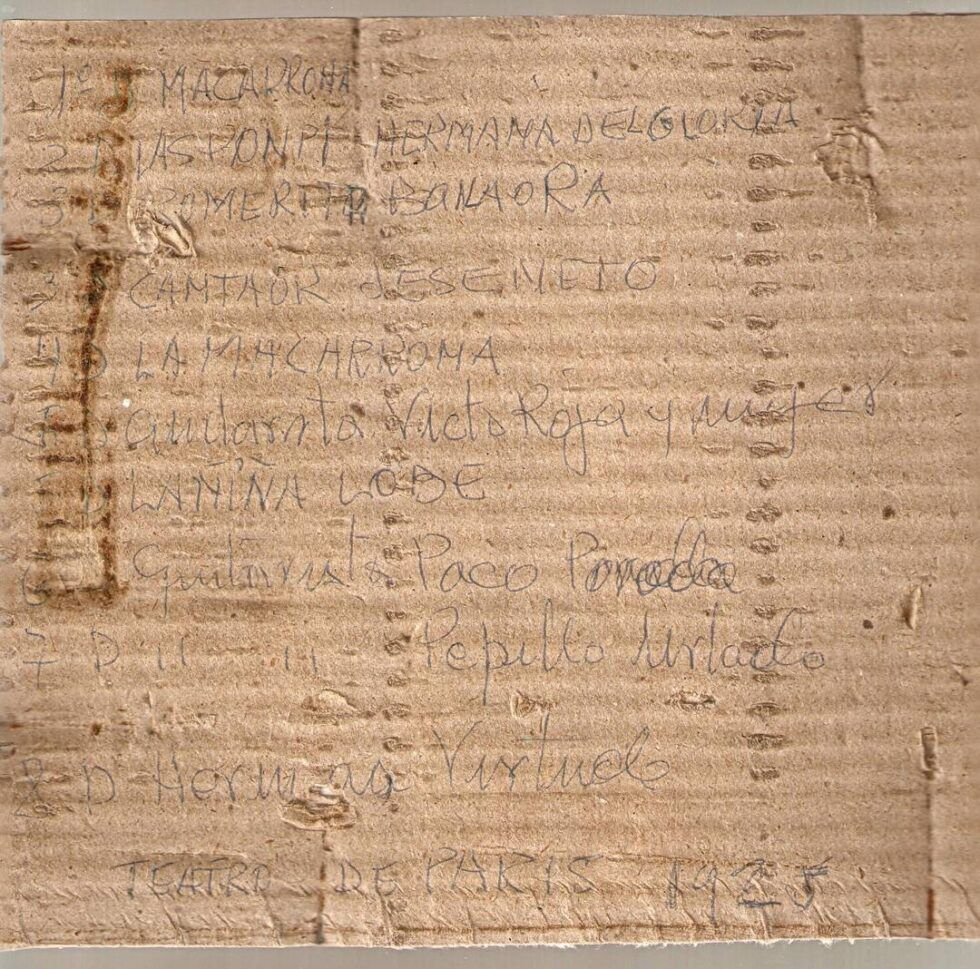 1º D MACARRONA
2 D LAS PONPI HERMANA DEL GLORIA
3 BONAORA
3 CANTAOR JESENETO
4 D LA MACHRRONA
guitarista Victo Roja y mujer
D LA NIÑA LOBE
6 Guitarrista Paco
7 D " " Pepillo Urtado
8 D Hermana Virtude
TEATRO DE PARIS 1925